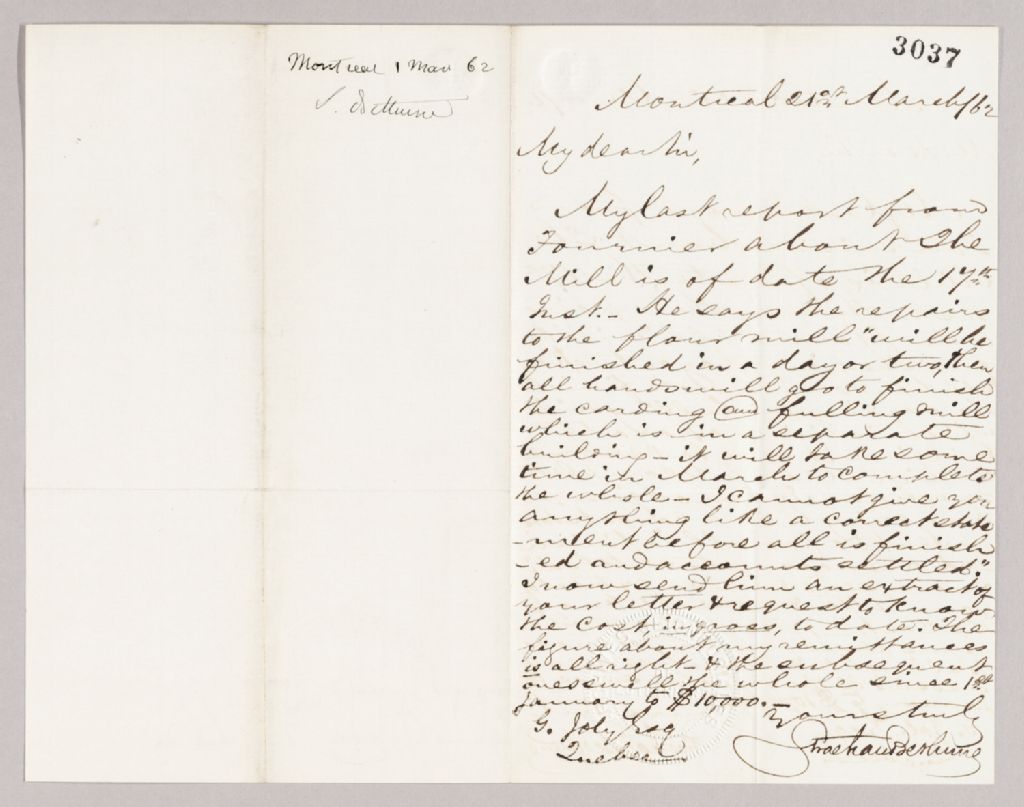 Montreal 1 Mar 62
S. Bethune
3037
Montreal 21st March/62
My dear Sir,
My last report from
Fournier about The
Mill is of date the 17th
Inst.- He says the repairs
to the flour mill "will be
finished in a day or two, then
all hands will go to finish
the carding and fulling mill
which is in a separate
building - it will take some
time in March to complete
the whole - I cannot give you
anything like a correct state
-ment before all is finish
-ed and accounts settled."
I now send him an extract of
your letter & request to know
the cost, in gross, to date. The
figure about my remittances
is all right - & the subsequent
ones swell the whole since 1st
January to $10,000.-
Yours truly
Strachan Bethune
G. Joly Esq
Quebec